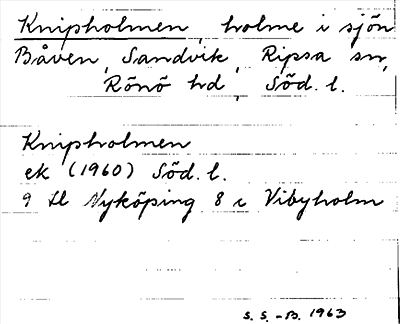 Knipholmen, holme i sjön
Båven, Sandvik, Ripsa sn,
Rönö hd, Söd. l.
Knipholmen
ek (1960) Söd. l.
9 H Nyköping 8 c Vibyholm
S. S. -B. 1963